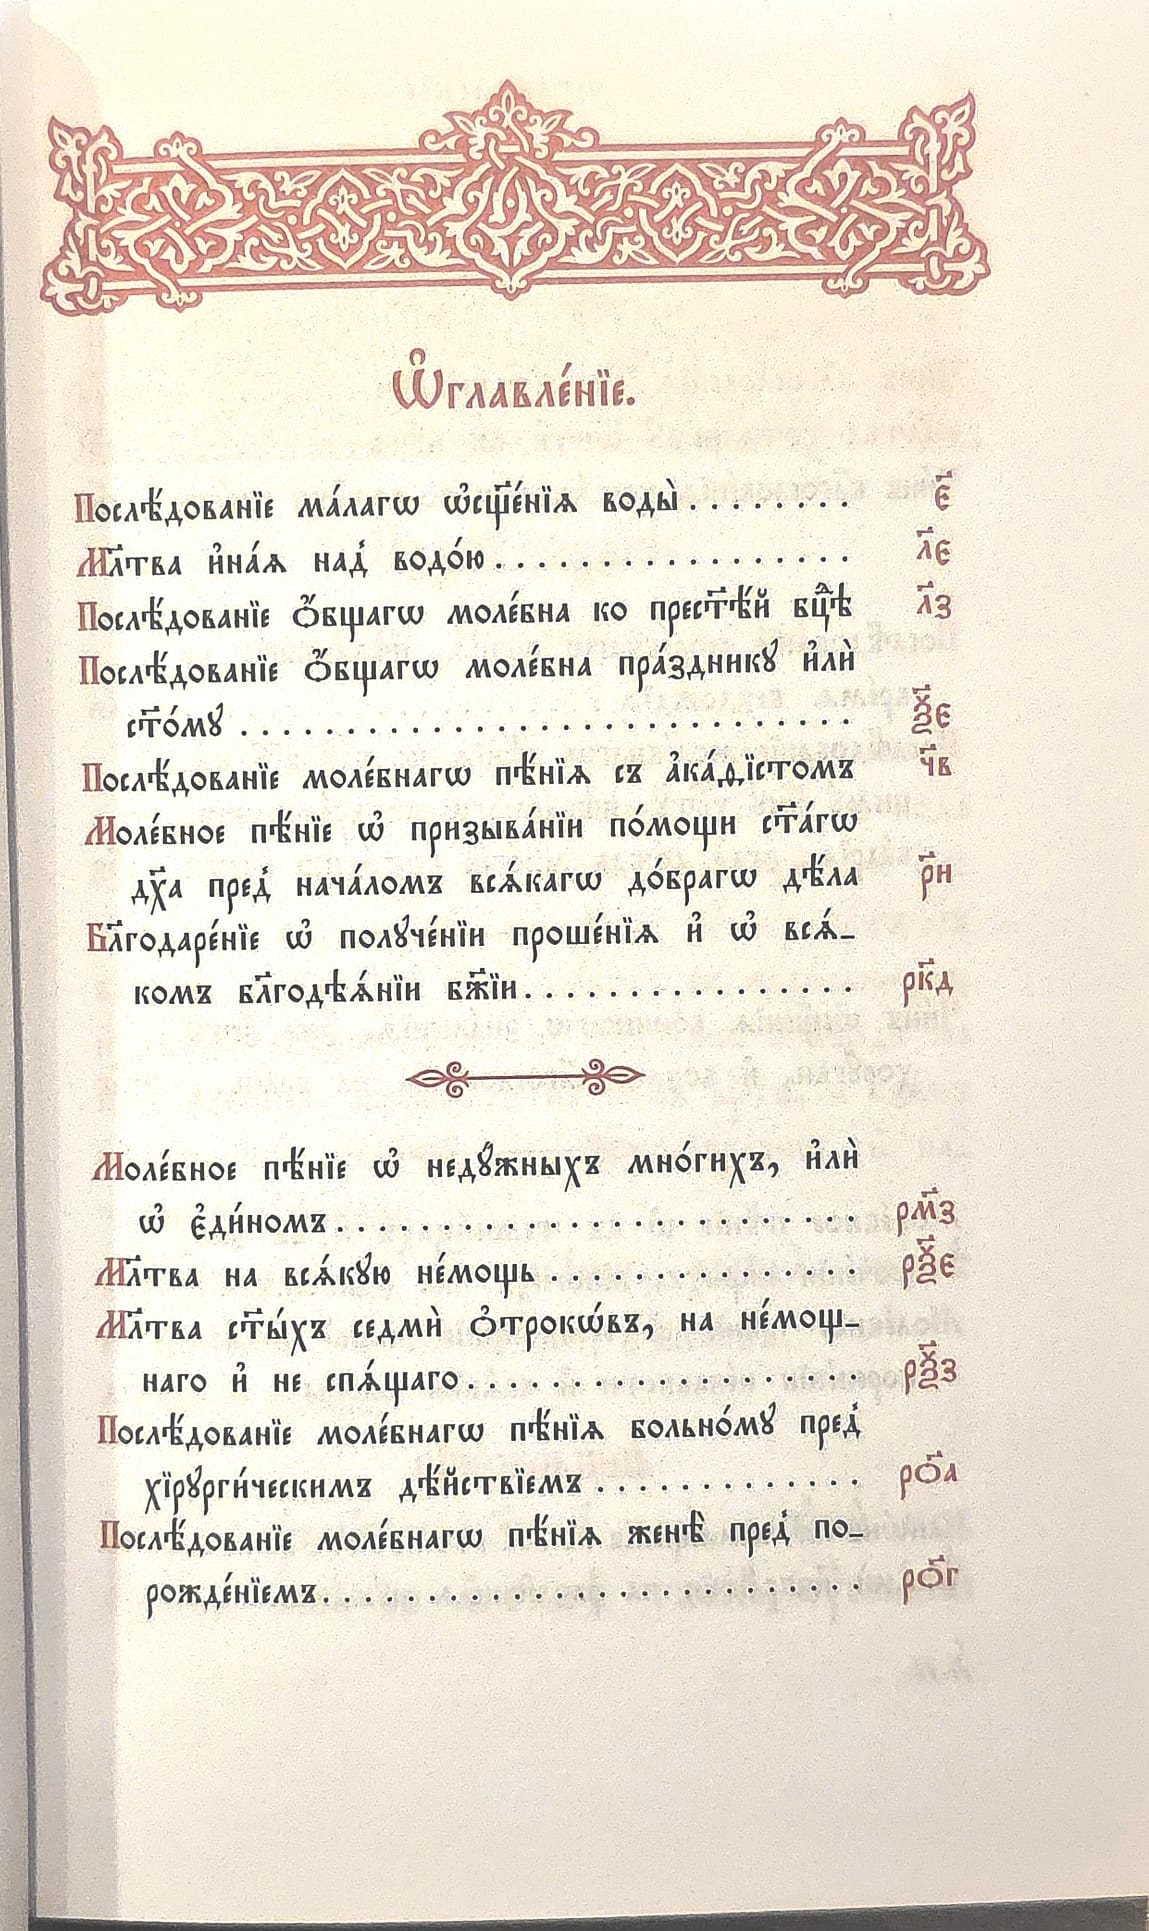 Ѡ҆главле́нїе.
Послѣ́дованїе ма́лагѡ ѡ҆сщ҃е́нїѧ воды̀ . . . . . . . . є҃
Мл҃тва и҆на́ѧ над̾ водо́ю . . . . . . . . . . . . . . . . . л҃є
Послѣ́дованїе ѻ҆́бщагѡ моле́бна ко прест҃ѣ́й бцⷣѣ л҃з
Послѣ́дованїе ѻ҆́бщагѡ моле́бна пра́зднику и҆лѝ
ст҃о́му . . . . . . . . . . . . . . . . . . . . . . . . . . . . . ѯ҃є
Послѣ́дованїе моле́бнагѡ пѣ́нїѧ съ а҆ка́ѳїстомъ ч҃в
Моле́бное пѣ́нїе ѡ҆ призыва́нїи по́мощи ст҃а́гѡ
дх҃а пред̾ нача́ломъ всѧ́кагѡ до́брагѡ дѣ́ла р҃н
Бл҃годаре́нїе ѡ҆ получе́нїи проше́нїѧ и҆ ѡ҆ всѧ́_
комъ бл҃годѣѧ́нїи бж҃їи . . . . . . . . . . . . . . . . рк҃д
Моле́бное пѣ́нїе ѡ҆ неду́жныхъ мно́гихъ, и҆лѝ
ѡ҆ є҆ди́номъ . . . . . . . . . . . . . . . . . . . . . . . . . рм҃з
Мл҃тва на всѧ́кую не́мощь . . . . . . . . . . . . . . . рѯ҃є
Мл҃тва ст҃ы́хъ седмѝ ѻ҆трокѡ́въ, на не́мощ_
наго и҆ не спѧ́щаго . . . . . . . . . . . . . . . . . . . рѯ҃з
Послѣ́дованїе моле́бнагѡ пѣ́нїѧ больно́му пред̾
хїрурги́ческимъ дѣ́йствїемъ . . . . . . . . . . . . . ро҃а
Послѣ́дованїе моле́бнагѡ пѣ́нїѧ женѣ̀ пред̾ по_
рожде́нїемъ . . . . . . . . . . . . . . . . . . . . . . . . . . ро҃г